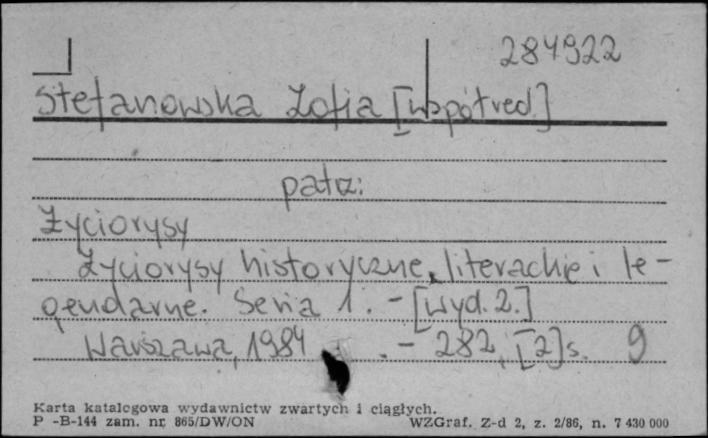 284922
Stefanowska Zofia [współred.]
patrz:
Życiorysy
Życiorysy historyczne, literackie i le-
gendarne. Seria 1. - [wyd. 2.]
Warszawa, 1984 . - 282, [2] s. 9
Karta katalogowa wydawnictw zwartych i ciągłych.
P -B-144 zam. nr 865/DW/ON WZGraf. Z-d 2, z. 2/86, n. 7 430 000